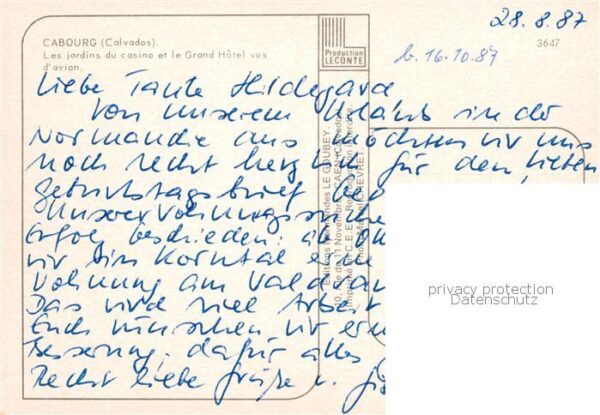 28.8.87
b. 16.10.87
CABOURG (Calvados).
Les jardins du casino et le Grand Hôtel vus
d'avion.
Production
LECONTE
3647
Liebe Tante Hildegard
Von unserem Urlaub in der
Normandie aus möchten wir uns
noch recht herzlich für den lieben
Geburtstagsbrief
Unserer Wohnungssuche
Erfolg beschieden: ab
wir in Korntal eine
Wohnung am Waldran
Das wird viel Arbeit
Euch wünschen wir
Besserung, dafür alles
Recht liebe Grüße u.
Editions Normandes LE GOUBEY
11 Novembre - CAEN (Calvados)
privacy protection
Datenschutz